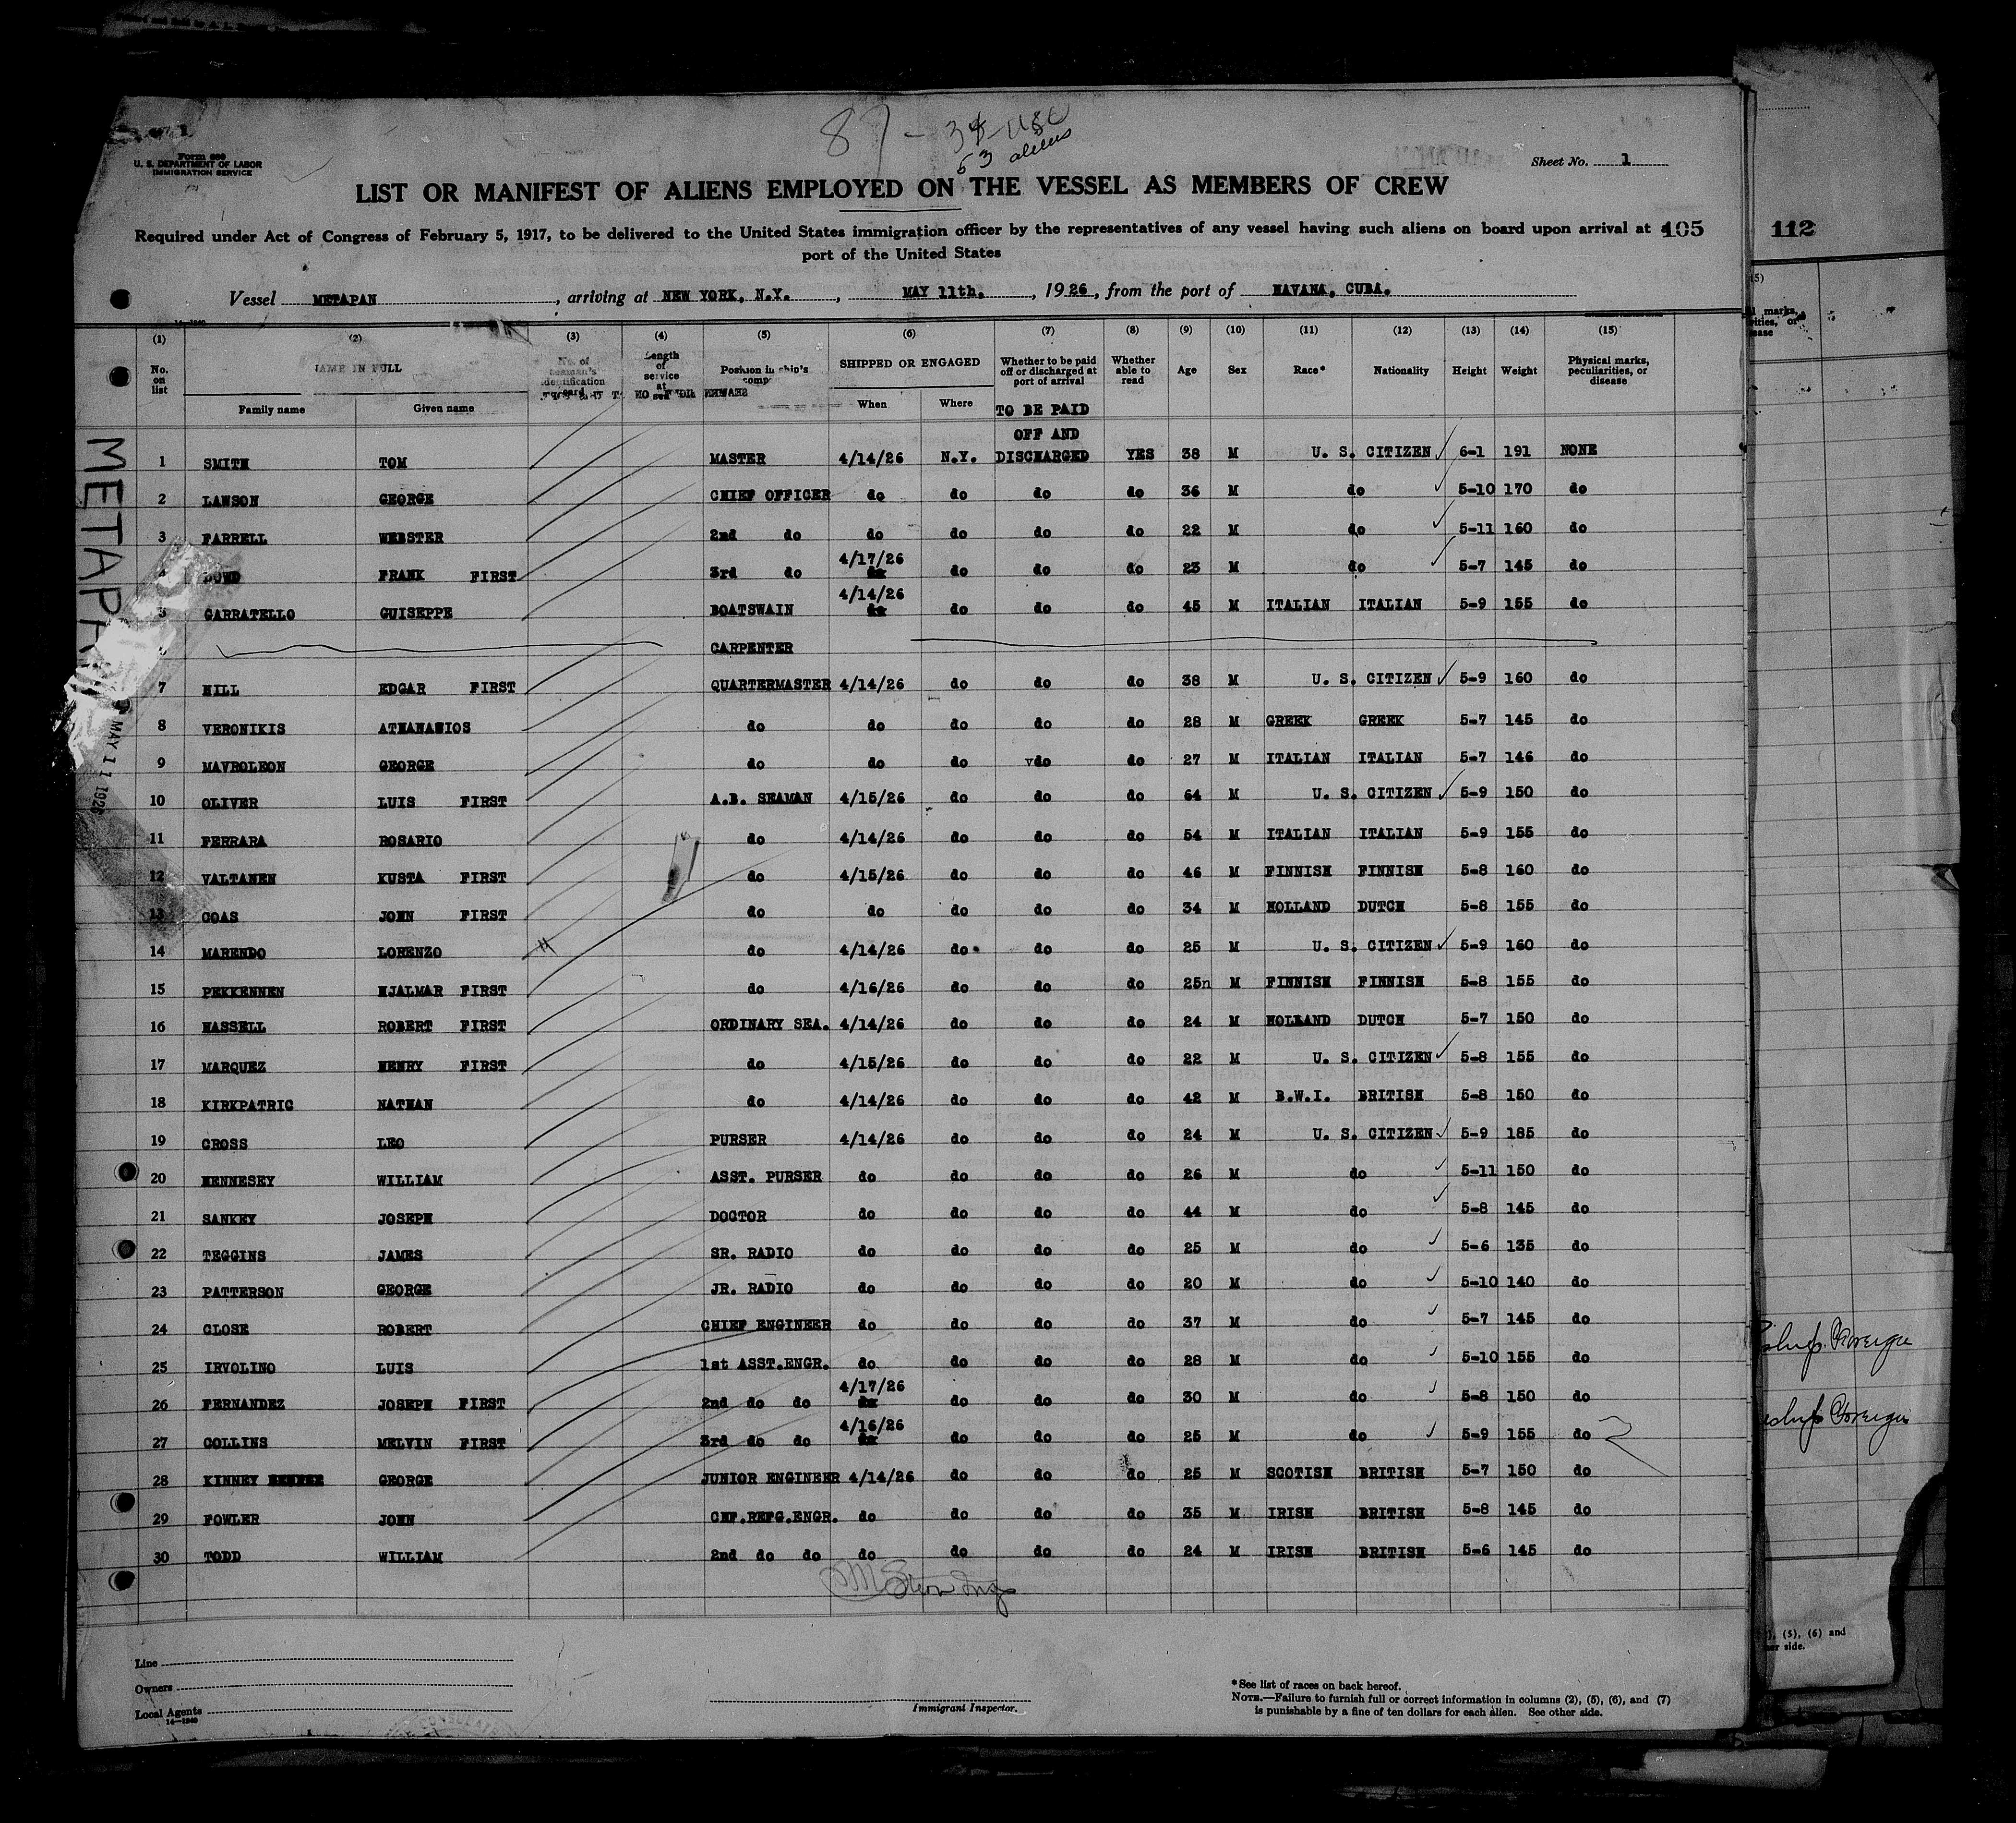 87 - 34 - USC
53 aliens
Form 689
U. S. DEPARTMENT OF LABOR
IMMIGRATION SERVICE
Sheet No. 1
LIST OR MANIFEST OF ALIENS EMPLOYED ON THE VESSEL AS MEMBERS OF CREW
Required under Act of Congress of February 5, 1917, to be delivered to the United States immigration officer by the representatives of any vessel having such aliens on board upon arrival at a
port of the United States
105
112
Vessel METAPAN, arriving at NEW YORK, N.Y., MAY 11th, 1926, from the port of HAVANA, CUBA.
(1) (2) (3) (4) (5) (6) (7) (8) (9) (10) (11) (12) (13) (14) (15)
No. on list NAME IN FULL Family name Given name No. of seaman's identification card Length of service at sea Position in ship's company SHIPPED OR ENGAGED When Where Whether to be paid off or discharged at port of arrival Whether able to read Age Sex Race* Nationality Height Weight Physical marks, peculiarities, or disease
TO BE PAID
OFF AND
1 SMITH TOM MASTER 4/14/26 N.Y. DISCHARGED YES 38 M U. S. CITIZEN 6-1 191 NONE
2 LAWSON GEORGE CHIEF OFFICER do do do do 36 M do 5-10 170 do
3 FARRELL WEBSTER 2nd do do do do do 22 M do 5-11 160 do
4 DOWD FRANK FIRST 3rd do 4/17/26 do do do 23 M do 5-7 145 do
5 GARRATELLO GUISEPPE BOATSWAIN 4/14/26 do do do 45 M ITALIAN ITALIAN 5-9 155 do
6 CARPENTER
7 HILL EDGAR FIRST QUARTERMASTER 4/14/26 do do do 38 M U. S. CITIZEN 5-9 160 do
8 VERONIKIS ATHANANIOS do do do do do 28 M GREEK GREEK 5-7 145 do
9 MAVROLEON GEORGE do do do vdo do 27 M ITALIAN ITALIAN 5-7 146 do
10 OLIVER LUIS FIRST A.B. SEAMAN 4/15/26 do do do 64 M U. S. CITIZEN 5-9 150 do
11 FERRARA ROSARIO do 4/14/26 do do do 54 M ITALIAN ITALIAN 5-9 155 do
12 VALTANEN KUSTA FIRST do 4/15/26 do do do 46 M FINNISH FINNISH 5-8 160 do
13 COAS JOHN FIRST do do do do do 34 M HOLLAND DUTCH 5-8 155 do
14 MARENDO LORENZO do 4/14/26 do do do 25 M U. S. CITIZEN 5-9 160 do
15 PEKKENNEN HJALMAR FIRST do 4/16/26 do do do 25n M FINNISH FINNISH 5-8 155 do
16 HASSELL ROBERT FIRST ORDINARY SEA. 4/14/26 do do do 24 M HOLLAND DUTCH 5-7 150 do
17 MARQUEZ HENRY FIRST do 4/15/26 do do do 22 M U. S. CITIZEN 5-8 155 do
18 KIRKPATRIC NATHAN do 4/14/26 do do do 42 M B.W.I. BRITISH 5-8 150 do
19 CROSS LEO PURSER 4/14/26 do do do 24 M U. S. CITIZEN 5-9 185 do
20 HENNESEY WILLIAM ASST. PURSER do do do do 26 M do 5-11 150 do
21 SANKEY JOSEPH DOCTOR do do do do 44 M do 5-8 145 do
22 TEGGINS JAMES SR. RADIO do do do do 25 M do 5-6 135 do
23 PATTERSON GEORGE JR. RADIO do do do do 20 M do 5-10 140 do
24 CLOSE ROBERT CHIEF ENGINEER do do do do 37 M do 5-7 145 do
25 IRVOLINO LUIS 1st ASST.ENGR. do do do do 28 M do 5-10 155 do
26 FERNANDEZ JOSEPH FIRST 2nd do do 4/17/26 do do do 30 M do 5-8 150 do
27 COLLINS MELVIN FIRST 3rd do do 4/16/26 do do do 25 M do 5-9 155 do
28 KINNEY GEORGE JUNIOR ENGINEER 4/14/26 do do do 25 M SCOTISH BRITISH 5-7 150 do
29 FOWLER JOHN CHF.REFG.ENGR. do do do do 35 M IRISH BRITISH 5-8 145 do
30 TODD WILLIAM 2nd do do do do do do 24 M IRISH BRITISH 5-6 145 do
METAPA
MAY 11 1926
Line
Owners
Local Agents
14—1240
Immigrant Inspector.
*See list of races on back hereof.
NOTE.—Failure to furnish full or correct information in columns (2), (5), (6), and (7)
is punishable by a fine of ten dollars for each alien. See other side.
(5), (6) and
side.